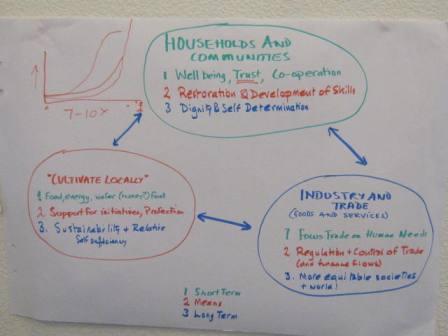 7-10x
HOUSEHOLDS AND
COMMUNITIES
1 Well being, Trust, Co-operation
2 Restoration & Development of Skills
3 Dignity & Self Determination
"CULTIVATE LOCALLY"
1 Food, energy, water (money?)
2 Support for initiatives, Protection
3. Sustainability + Relative
Self sufficiency
INDUSTRY AND
TRADE
(GOODS AND SERVICES)
1 Focus Trade on Human Needs
2 Regulation + Control of Trade
(and finance flows)
3. More equitable societies
+ world!
1 Short Term
2 Means
3 Long Term